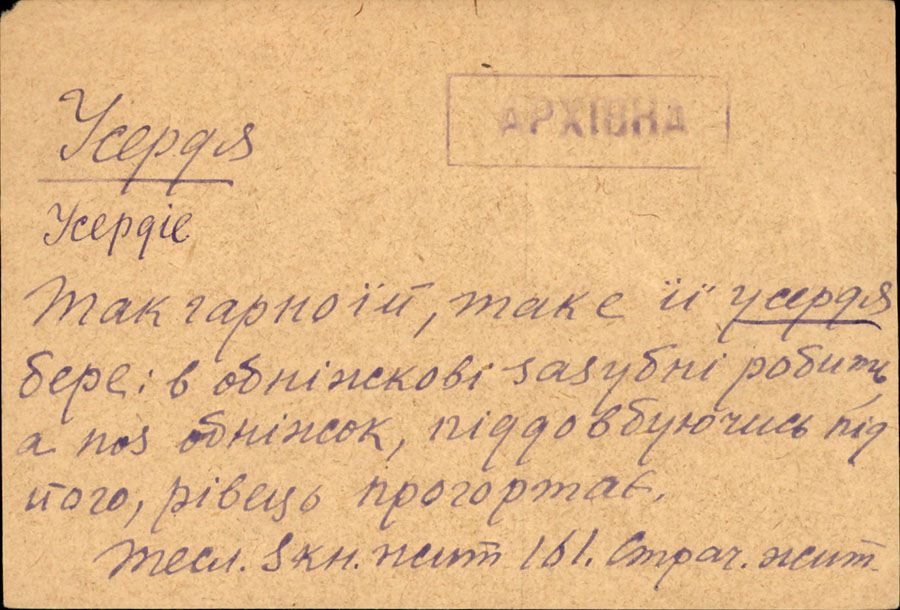 АРХІВНА
Усердя
Усердіє
Так гарно їй, таке її усердя
бере: в обніжкові зазубні робить,
а поз обніжок, піддовбуючись під
його, рівець прогортає.
Тесл. З кн. жит 161. Страч. жит.